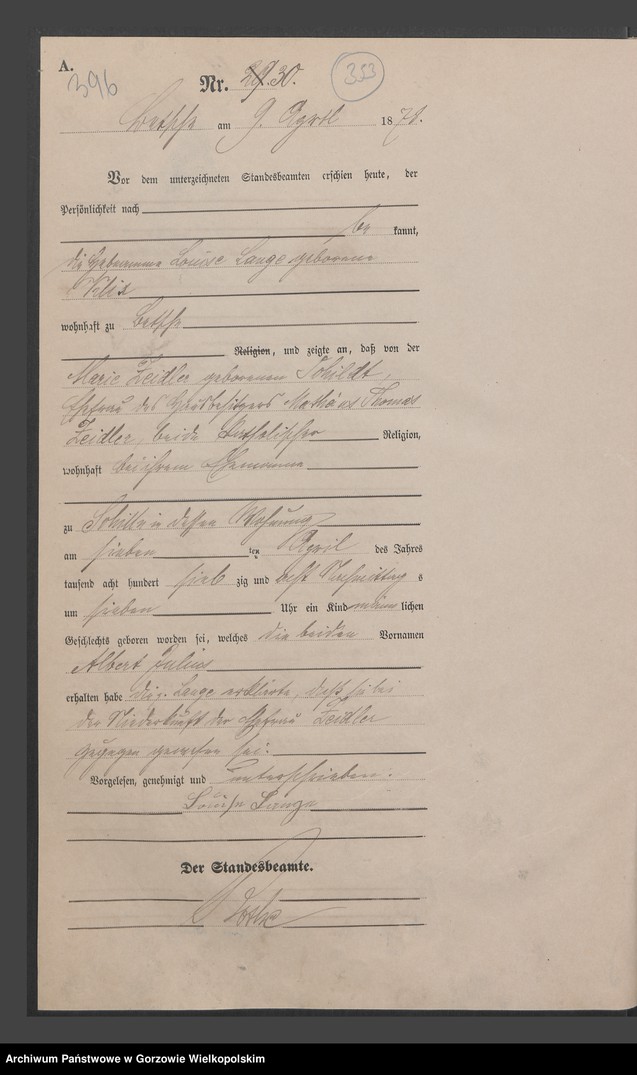 A.
396
Nr. 29. 30.
353
Betsche am 9. April 1878.
Vor dem unterzeichneten Standesbeamten erschien heute, der
Persönlichkeit nach
be kannt,
die Hebeamme Louise Lange geborene
wohnhaft zu Betsche
Religion, und zeigte an, daß von der
Marie Zeidler geborenen Schildt,
Ehefrau des Mathäus Thomas
Zeidler, beide katholischer Religion,
wohnhaft bei ihrem Ehemanne
zu in dessen Wohnung
am sieben ten April des Jahres
tausend acht hundert sieb zig und acht Nachmittag s
um sieben Uhr ein Kind männ lichen
Geschlechts geboren worden sei, welches die beiden Vornamen
Albert Julius
erhalten habe die p. Lange erklärte, daß sie bei
der Niederkunft der Ehefrau Zeidler
zugegen gewesen sei.
Vorgelesen, genehmigt und unterschrieben.
Louise Lange
Der Standesbeamte.
Archiwum Państwowe w Gorzowie Wielkopolskim